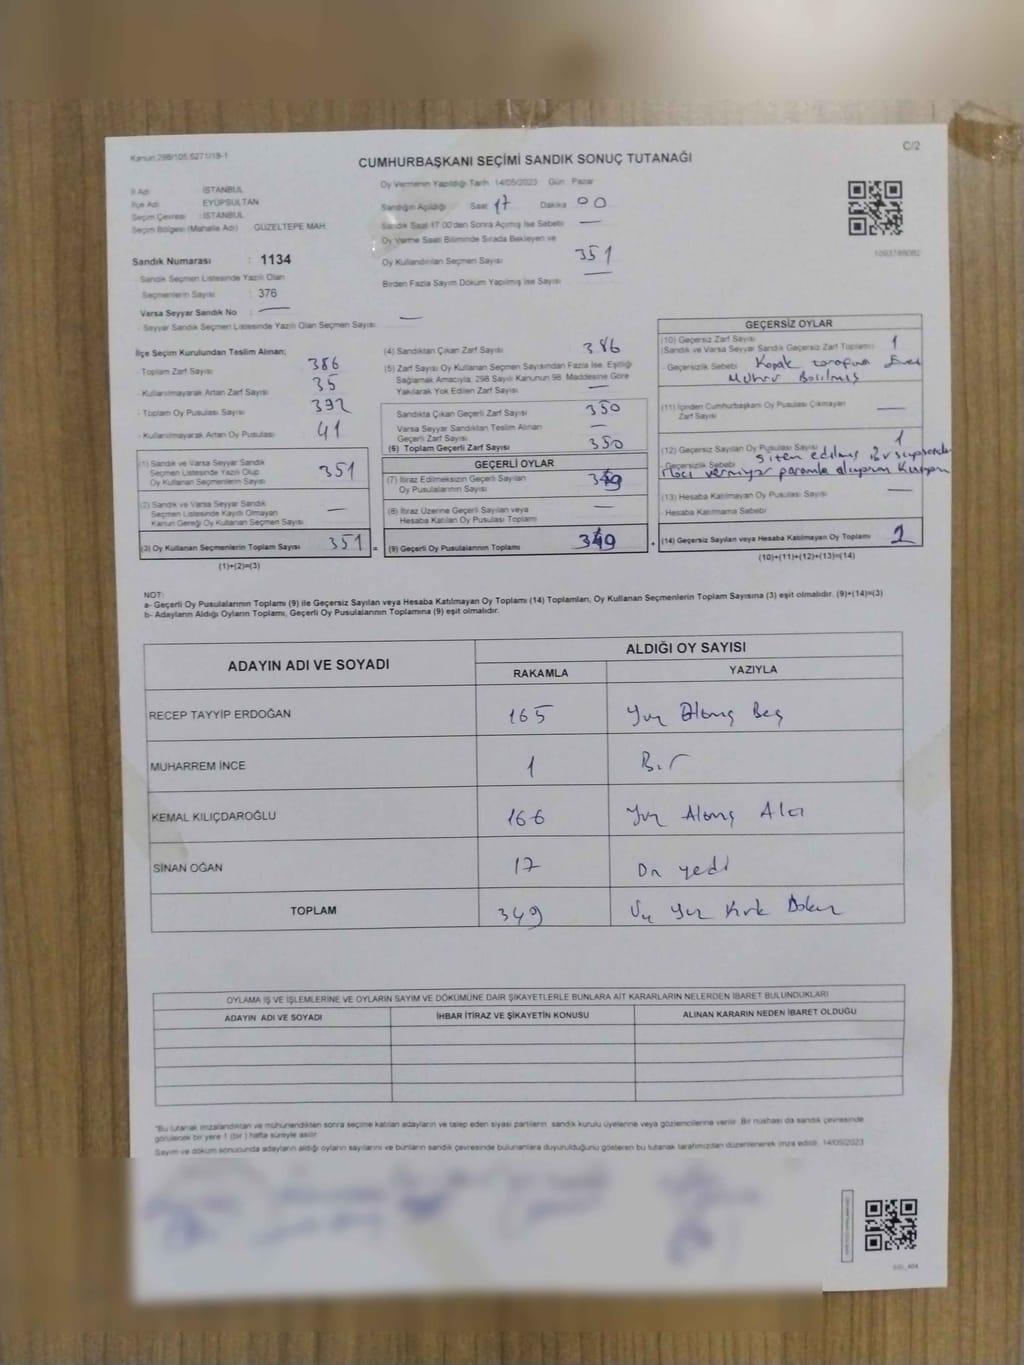 Kanun:298/105,6271/18-1
C/2
CUMHURBAŞKANI SEÇİMİ SANDIK SONUÇ TUTANAĞI
İl Adı : İSTANBUL
İlçe Adı : EYÜPSULTAN
Seçim Çevresi : İSTANBUL
Seçim Bölgesi (Mahalle Adı) GÜZELTEPE MAH.
Sandık Numarası : 1134
Sandık Seçmen Listesinde Yazılı Olan
Seçmenlerin Sayısı : 376
Varsa Seyyar Sandık No : —
Seyyar Sandık Seçmen Listesinde Yazılı Olan Seçmen Sayısı: —
Oy Vermenin Yapıldığı Tarih 14/05/2023 Gün Pazar
Sandığın Açıldığı Saat 17 Dakika 00
Sandık Saat 17.00'den Sonra Açılmış İse Sebebi —
Oy Verme Saati Bitiminde Sırada Bekleyen ve
Oy Kullandırılan Seçmen Sayısı 351
Birden Fazla Sayım Döküm Yapılmış İse Sayısı —
İlçe Seçim Kurulundan Teslim Alınan;
- Toplam Zarf Sayısı 386
- Kullanılmayarak Artan Zarf Sayısı 35
- Toplam Oy Pusulası Sayısı 392
- Kullanılmayarak Artan Oy Pusulası 41
(1) Sandık ve Varsa Seyyar Sandık
Seçmen Listesinde Yazılı Olup
Oy Kullanan Seçmenlerin Sayısı 351
(2) Sandık ve Varsa Seyyar Sandık
Seçmen Listesinde Kayıtlı Olmayan
Kanun Gereği Oy Kullanan Seçmen Sayısı —
(3) Oy Kullanan Seçmenlerin Toplam Sayısı 351 =
(1)+(2)=(3)
(4) Sandıktan Çıkan Zarf Sayısı 386
(5) Zarf Sayısı Oy Kullanan Seçmen Sayısından Fazla İse, Eşitliği
Sağlamak Amacıyla, 298 Sayılı Kanunun 98. Maddesine Göre
Yakılarak Yok Edilen Zarf Sayısı —
Sandıkta Çıkan Geçerli Zarf Sayısı 350
Varsa Seyyar Sandıktan Teslim Alınan
Geçerli Zarf Sayısı —
(6) Toplam Geçerli Zarf Sayısı 350
GEÇERLİ OYLAR
(7) İtiraz Edilmeksizin Geçerli Sayılan
Oy Pusulalarının Sayısı 349
(8) İtiraz Üzerine Geçerli Sayılan veya
Hesaba Katılan Oy Pusulası Toplamı —
(9) Geçerli Oy Pusulalarının Toplamı 349 +
GEÇERSİZ OYLAR
(10) Geçersiz Zarf Sayısı
(Sandık ve Varsa Seyyar Sandık Geçersiz Zarf Toplamı) 1
- Geçersizlik Sebebi Kapak tarafına Evet
Mühür Basılmış
(11) İçinden Cumhurbaşkanı Oy Pusulası Çıkmayan
Zarf Sayısı —
(12) Geçersiz Sayılan Oy Pusulası Sayısı 1
- Geçersizlik Sebebi
(13) Hesaba Katılmayan Oy Pusulası Sayısı —
- Hesaba Katılmama Sebebi
(14) Geçersiz Sayılan veya Hesaba Katılmayan Oy Toplamı 2
(10)+(11)+(12)+(13)=(14)
NOT:
a- Geçerli Oy Pusulalarının Toplamı (9) ile Geçersiz Sayılan veya Hesaba Katılmayan Oy Toplamı (14) Toplamları, Oy Kullanan Seçmenlerin Toplam Sayısına (3) eşit olmalıdır. (9)+(14)=(3)
b- Adayların Aldığı Oyların Toplamı, Geçerli Oy Pusulalarının Toplamına (9) eşit olmalıdır.
ADAYIN ADI VE SOYADI
ALDIĞI OY SAYISI
RAKAMLA YAZIYLA
RECEP TAYYİP ERDOĞAN 165 Yüz Altmış Beş
MUHARREM İNCE 1 Bir
KEMAL KILIÇDAROĞLU 166 Yüz Altmış Altı
SİNAN OĞAN 17 On yedi
TOPLAM 349 Üç Yüz Kırk Dokuz
OYLAMA İŞ VE İŞLEMLERİNE VE OYLARIN SAYIM VE DÖKÜMÜNE DAİR ŞİKAYETLERLE BUNLARA AİT KARARLARIN NELERDEN İBARET BULUNDUKLARI
ADAYIN ADI VE SOYADI İHBAR İTİRAZ VE ŞİKAYETİN KONUSU ALINAN KARARIN NEDEN İBARET OLDUĞU
"Bu tutanak imzalandıktan ve mühürlendikten sonra seçime katılan adayların ve talep eden siyasi partilerin sandık kurulu üyelerine veya gözlemcilerine verilir. Bir nüshası da sandık çevresinde
görülecek bir yere 1 (bir) hafta süreyle asılır.
Sayım ve döküm sonucunda adayların aldığı oyların sayılarını ve bunların sandık çevresinde bulunanlara duyurulduğunu gösteren bu tutanak tarafımızdan düzenlenerek imza edildi. 14/05/2023